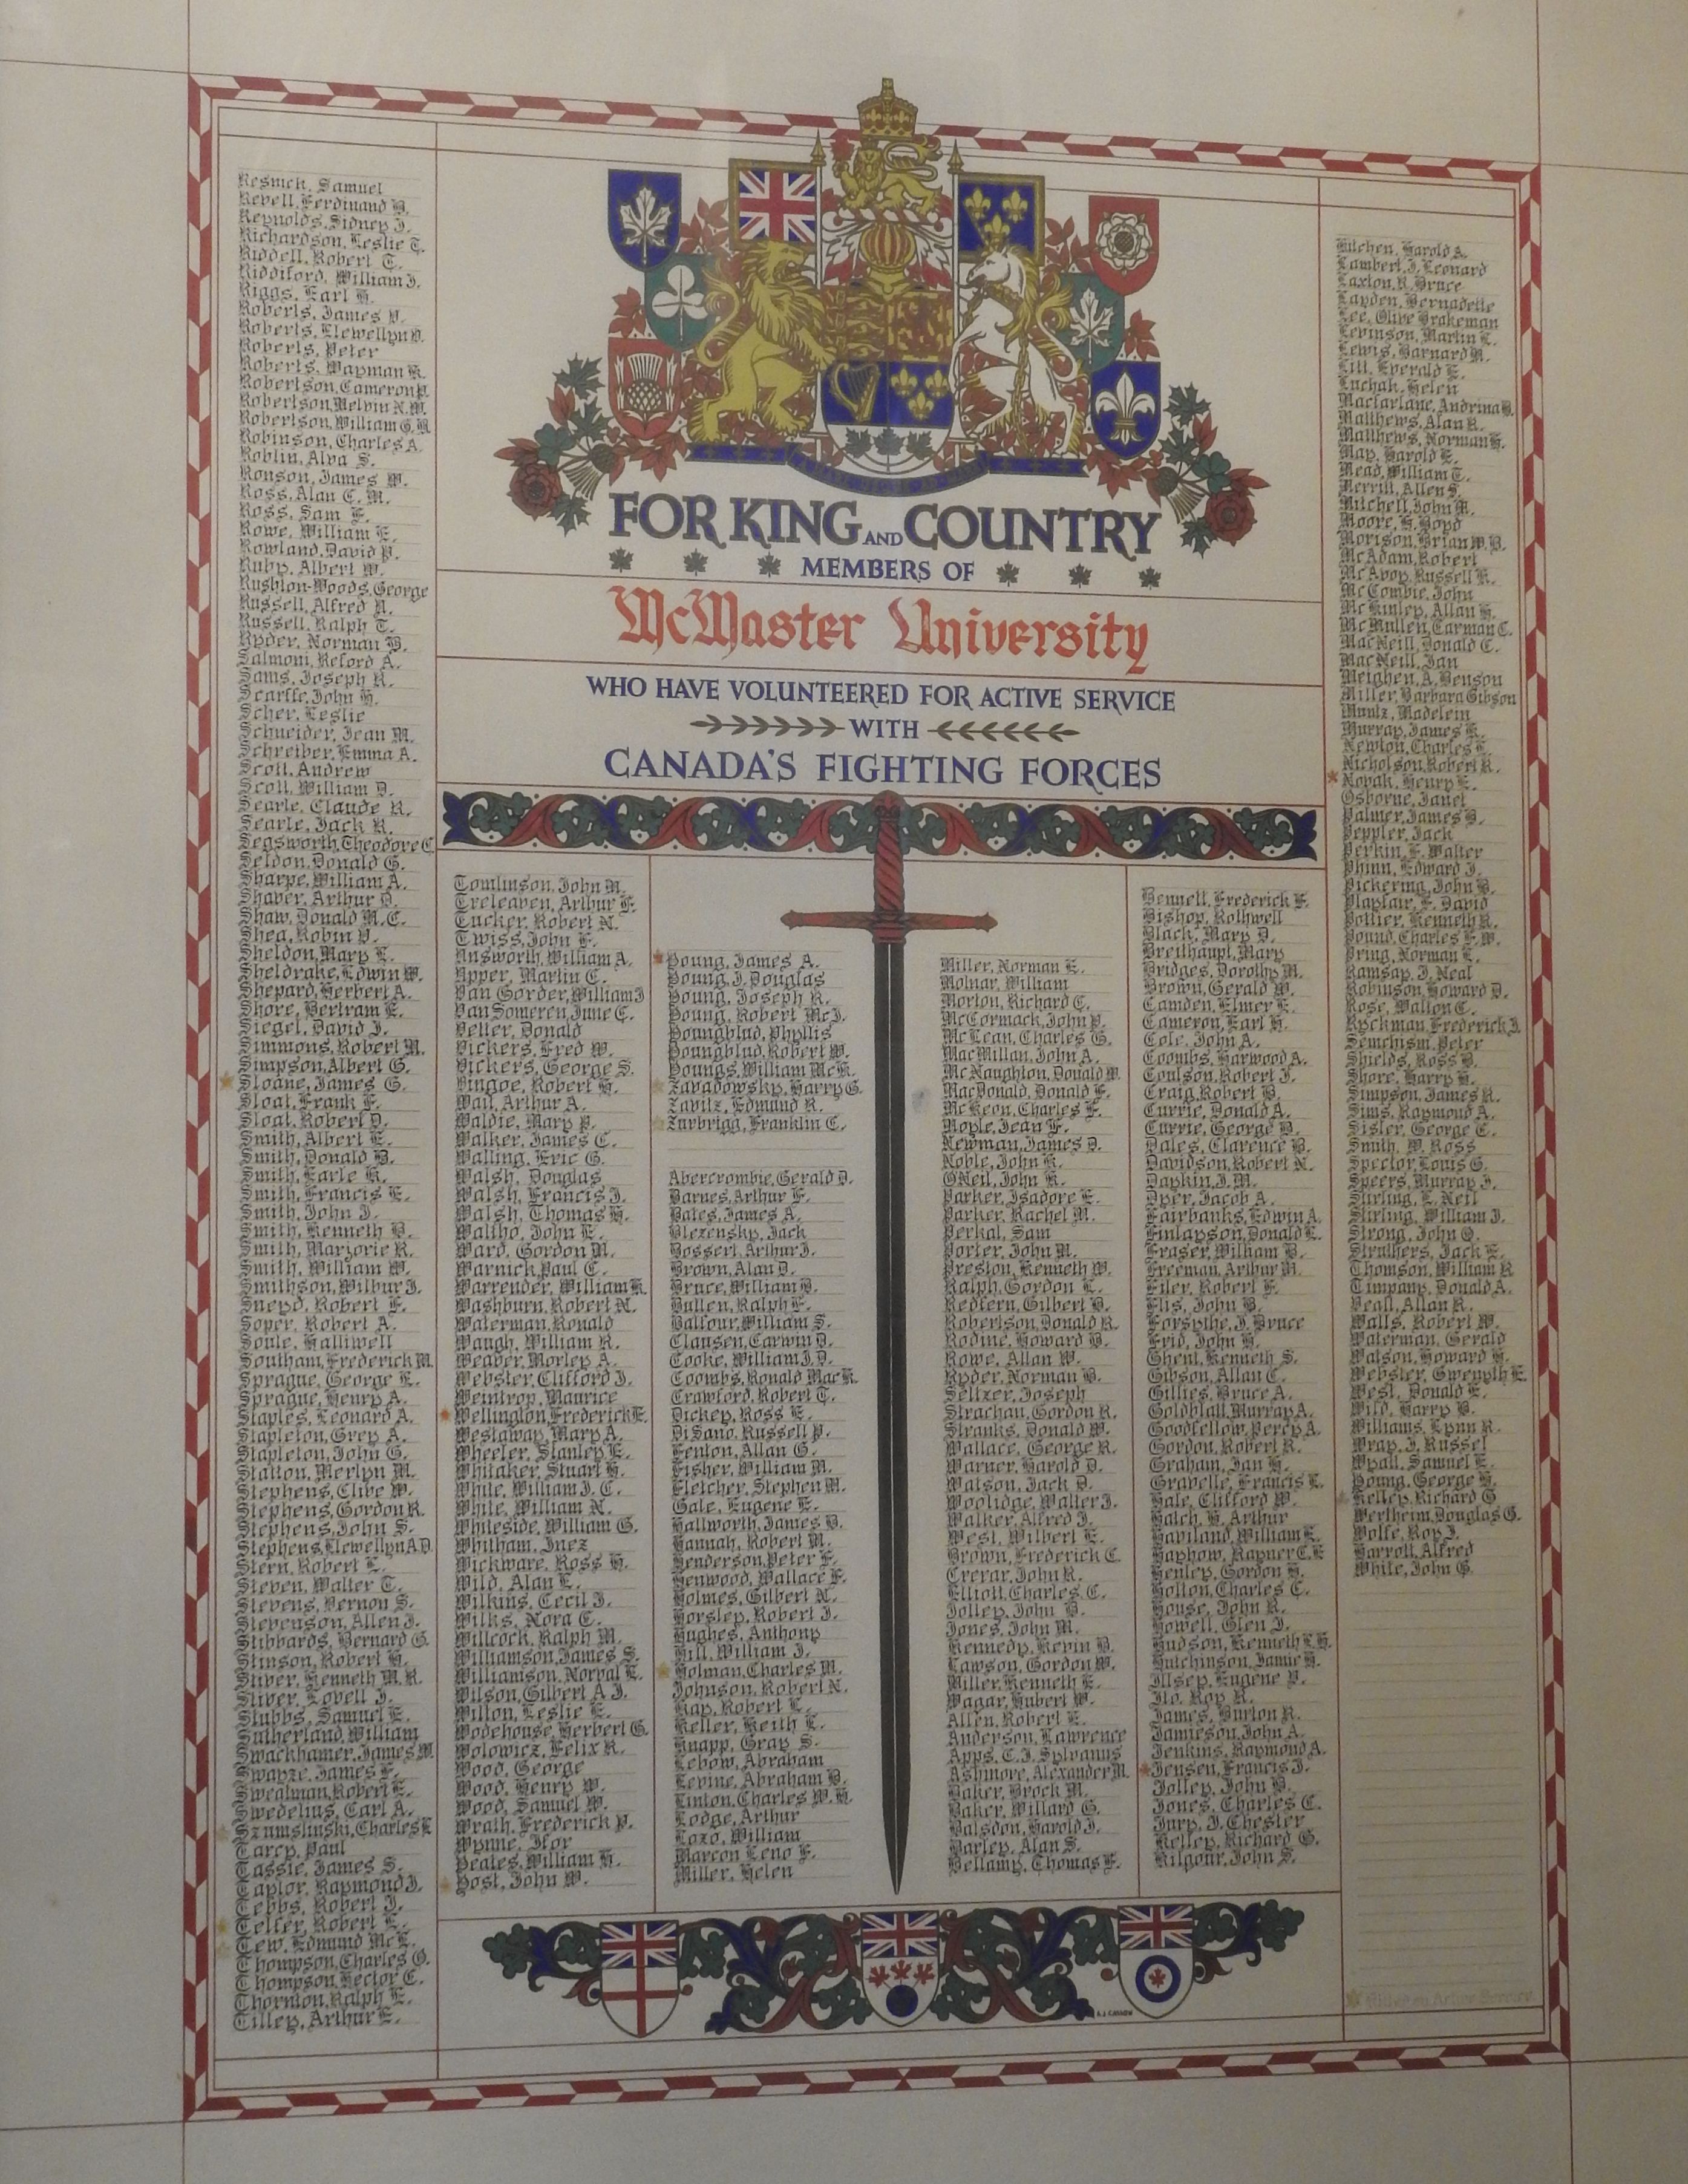 FOR KING AND COUNTRY
MEMBERS OF
McMaster University
WHO HAVE VOLUNTEERED FOR ACTIVE SERVICE
WITH
CANADA'S FIGHTING FORCES
Resnick, Samuel
Revell, Ferdinand B.
Reynolds, Sidney J.
Richardson, Leslie T.
Riddell, Robert T.
Riddiford, William J.
Riggs, Earl H.
Roberts, James V.
Roberts, Llewellyn D.
Roberts, Peter
Roberts, Wayman K.
Robertson, Cameron P.
Robertson, Melvin N.W.
Robertson, William G.H.
Robinson, Charles A.
Roblin, Alva S.
Ronson, James W.
Ross, Alan C. M.
Ross, Sam E.
Rowe, William E.
Rowland, David P.
Ruby, Albert W.
Rushton-Woods, George
Russell, Alfred H.
Russell, Ralph T.
Ryder, Norman B.
Salmoni, Reford A.
Sams, Joseph R.
Scarffe, John H.
Scher, Leslie
Schneider, Jean M.
Schreiber, Emma A.
Scott, Andrew
Scott, William D.
Searle, Claude R.
Searle, Jack R.
Segsworth, Theodore C
Seldon, Donald G.
Sharpe, William A.
Shaver, Arthur D.
Shaw, Donald M. C.
Shea, Robin V.
Sheldon, Mary L.
Sheldrake, Edwin W.
Shepard, Herbert A.
Shore, Bertram E.
Siegel, David J.
Simmons, Robert M.
Simpson, Albert G.
Sloane, James G.
Sloat, Frank F.
Sloat, Robert D.
Smith, Albert E.
Smith, Donald B.
Smith, Earle K.
Smith, Francis E.
Smith, John J.
Smith, Kenneth B.
Smith, Marjorie R.
Smith, William W.
Smithson, Wilbur J.
Sneyd, Robert F.
Soper, Robert A.
Soule, Halliwell
Southam, Frederick M.
Sprague, George E.
Sprague, Henry A.
Staples, Leonard A.
Stapleton, Grey A.
Stapleton, John G.
Statton, Merlyn M.
Stephens, Clive W.
Stephens, Gordon R.
Stephens, John S.
Stephens, Llewellyn A.D.
Stern, Robert L.
Steven, Walter T.
Stevens, Vernon S.
Stevenson, Allen J.
Stibbards, Bernard G.
Stinson, Robert H.
Stiver, Kenneth M. R.
Stiver, Lovell J.
Stubbs, Samuel E.
Sutherland, William
Swackhamer, James W.
Swayze, James F.
Swealman, Robert E.
Swedelius, Carl A.
Szumslinski, Charles E
Tarcy, Paul
Tassie, James S.
Taylor, Raymond J.
Tebbs, Robert J.
Telfer, Robert E.
Tew, Edmund McE.
Thompson, Charles G.
Thompson, Hector C.
Thornton, Ralph E.
Tilley, Arthur E.
Tomlinson, John M.
Treleaven, Arthur F.
Tucker, Robert N.
Twiss, John F.
Unsworth, William A.
Upper, Martin C.
Van Gorder, William J
Van Someren, June C.
Veller, Donald
Vickers, Fred W.
Vickers, George S.
Vingoe, Robert H.
Wait, Arthur A.
Waldie, Mary P.
Walker, James C.
Walling, Eric G.
Walsh, Douglas
Walsh, Francis J.
Walsh, Thomas H.
Waltho, John E.
Ward, Gordon M.
Warnick, Paul C.
Warrender, William K.
Washburn, Robert N.
Waterman, Ronald
Waugh, William R.
Weaver, Morley A.
Webster, Clifford J.
Weintrop, Maurice
Wellington, Frederick E.
Westaway, Mary A.
Wheeler, Stanley E.
Whitaker, Stuart H.
White, William J. C.
White, William N.
Whiteside, William G.
Whitham, Inez
Wickware, Ross H.
Wild, Alan E.
Wilkins, Cecil J.
Wilks, Nora C.
Willcock, Ralph M.
Williamson, James S.
Williamson, Norval L.
Wilson, Gilbert A J.
Wilton, Leslie E.
Wodehouse, Herbert G.
Wolowicz, Felix R.
Wood, George
Wood, Henry W.
Wood, Samuel W.
Wrath, Frederick P.
Wynne, Ifor
Yeates, William H.
Yost, John W.
Young, James A.
Young, J. Douglas
Young, Joseph R.
Young, Robert McJ.
Youngblud, Phyllis
Youngblud, Robert W.
Youngs, William McK.
Zavadowsky, Harry G.
Zavitz, Edmund R.
Zurbrigg, Franklin C.
Abercrombie, Gerald D.
Barnes, Arthur F.
Bates, James A.
Blezensky, Jack
Bossert, Arthur J.
Brown, Alan D.
Bruce, William B.
Bullen, Ralph E.
Balfour, William S.
Clausen, Carwin D.
Cooke, William J. D.
Coombs, Ronald MacK.
Crawford, Robert T.
Dickey, Ross E.
DiSano, Russell P.
Fenton, Allan G.
Fisher, William M.
Fletcher, Stephen M.
Gale, Eugene E.
Hallworth, James D.
Hannah, Robert M.
Henderson, Peter F.
Henwood, Wallace F.
Holmes, Gilbert N.
Horsley, Robert J.
Hughes, Anthony
Hill, William J.
Holman, Charles M.
Johnson, Robert N.
Kay, Robert L.
Keller, Keith L.
Knapp, Gray S.
Lebow, Abraham
Levine, Abraham B.
Linton, Charles W. H.
Lodge, Arthur
Lozo, William
Marcon Leno F.
Miller, Helen
Miller, Norman E.
Molnar, William
Morton, Richard C.
McCormack, John P.
McLean, Charles G.
MacMillan, John A.
McNaughton, Donald W.
MacDonald, Donald F.
McKeon, Charles F.
Moyle, Jean F.
Newman, James D.
Noble, John K.
O'Neil, John K.
Parker, Isadore E.
Parker, Rachel M.
Perkal, Sam
Porter, John M.
Preston, Kenneth W.
Ralph, Gordon L.
Redfern, Gilbert D.
Robertson, Donald R.
Rodine, Howard B.
Rowe, Allan W.
Ryder, Norman B.
Seltzer, Joseph
Strachan, Gordon R.
Stranks, Donald W.
Wallace, George R.
Warner, Harold D.
Watson, Jack D.
Woolidge, Walter J.
Walker, Alfred J.
West, Wilbert E.
Brown, Frederick C.
Crerar, John R.
Elliott, Charles C.
Jolley, John B.
Jones, John M.
Kennedy, Kevin D.
Lawson, Gordon W.
Miller, Kenneth E.
Wagar, Hubert W.
Allen, Robert E.
Anderson, Lawrence
Apps, C. J. Sylvanus
Ashmore, Alexander M.
Baker, Brock M.
Baker, Willard G.
Balsdon, Harold J.
Barley, Alan S.
Bellamy, Thomas F.
Bennett, Frederick E.
Bishop, Rothwell
Black, Mary D.
Breithaupt, Mary
Bridges, Dorothy M.
Brown, Gerald W.
Camden, Elmer E.
Cameron, Earl H.
Cole, John A.
Coombs, Harwood A.
Coulson, Robert J.
Craig, Robert B.
Currie, Donald A.
Currie, George B.
Dales, Clarence B.
Davidson, Robert N.
Daykin, J. M.
Dyer, Jacob A.
Fairbanks, Edwin A.
Finlayson, Donald E.
Fraser, William B.
Freeman, Arthur M.
Filer, Robert F.
Flis, John B.
Forsythe, J. Bruce
Frid, John H.
Ghent, Kenneth S.
Gibson, Allan C.
Gillies, Bruce A.
Goldblatt, Murray A.
Goodfellow, Percy A.
Gordon, Robert R.
Graham, Ian H.
Gravelle, Francis L.
Hale, Clifford W.
Hatch, H. Arthur
Haviland, William E.
Hayhow, Rayner C. E
Henley, Gordon H.
Holton, Charles C.
House, John R.
Howell, Glen J.
Hudson, Kenneth L.H.
Hutchinson, Jamie H.
Illsey, Eugene P.
Ito, Roy R.
James, Burton R.
Jamieson, John A.
Jenkins, Raymond A.
Jensen, Francis J.
Jolley, John B.
Jones, Charles C.
Jury, J. Chester
Kelley, Richard G.
Kilgour, John S.
Kitchen, Harold A.
Lambert, J. Leonard
Laxton, R. Bruce
Layden, Bernadette
Lee, Olive Brakeman
Levinson, Martin L.
Lewis, Barnard M.
Litt, Everald E.
Luchak, Helen
Macfarlane, Andrina B.
Matthews, Alan R.
Matthews, Norman H.
May, Harold E.
Mead, William T.
Merritt, Allen S.
Mitchell, John M.
Moore, H. Boyd
Morison, Brian W. B.
McAdam, Robert
McAvoy, Russell K.
McCombie, John
McKinley, Allan H.
McMullen, Carman C.
MacNeill, Donald C.
MacNeill, Ian
Meighen, A. Benson
Miller, Barbara Gibson
Muntz, Madelein
Murray, James K.
Newton, Charles E.
Nicholson, Robert R.
Novak, Henry E.
Osborne, Janet
Palmer, James B.
Peppler, Jack
Perkin, F. Walter
Phinn, Edward J.
Pickering, John B.
Playfair, E. David
Pottier, Kenneth R.
Pound, Charles F. W.
Pring, Norman L.
Ramsay, J. Neal
Robinson, Howard D.
Rose, Walton C.
Ryckman, Frederick J.
Semchism, Peter
Shields, Ross B.
Shore, Harry H.
Simpson, James R.
Sims, Raymond A.
Sisler, George C.
Smith, W. Ross
Spector, Louis G.
Speers, Murray J.
Stirling, L. Neil
Stirling, William J.
Strong, John Q.
Struthers, Jack E.
Thomson, William R
Timpany, Donald A.
Veall, Allan R.
Walls, Robert W.
Waterman, Gerald
Watson, Howard H.
Webster, Gwenyth E.
West, Donald E.
Wild, Harry B.
Williams, Lynn R.
Wray, J. Russel
Wyatt, Samuel E.
Young, George H.
Kelley, Richard G
Wertheim, Douglas G.
Wolfe, Roy J.
Barrott, Alfred
White, John G.
Killed on Active Service
A.J. CASSON